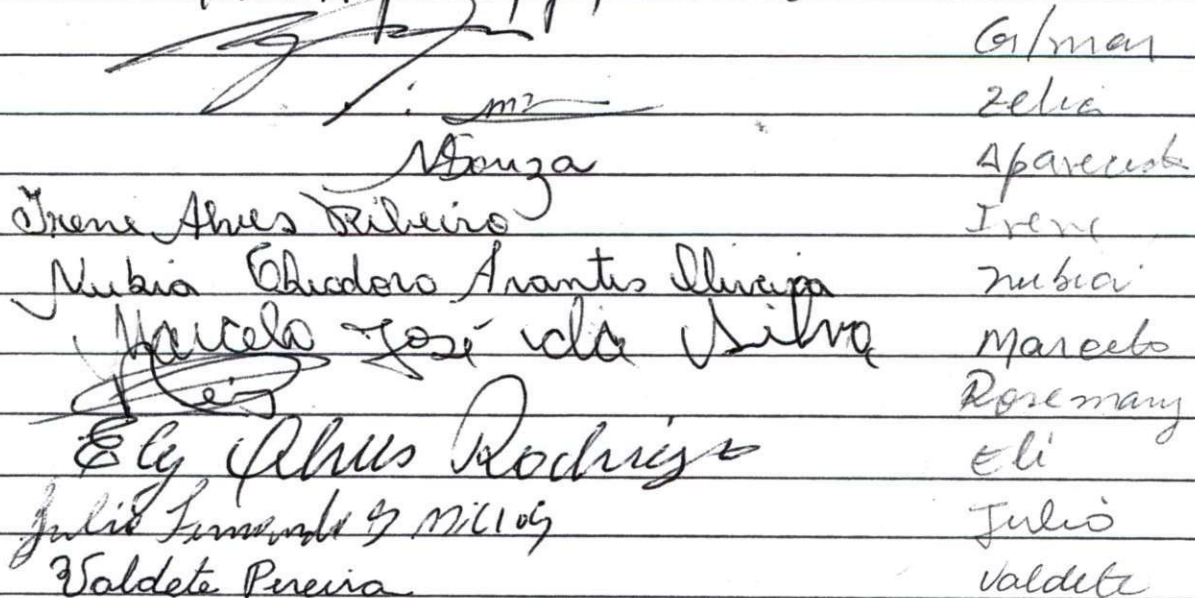 Gilmar
Zelia
NSouza Aparecida
Irene Alves Ribeiro Irene
Nubia Theodoro Arantes Oliveira Nubia
Marcelo José da Silva Marcelo
Rosemary
Ely Alves Rodrigo Eli
Julio Julio
Valdete Pereira Valdete